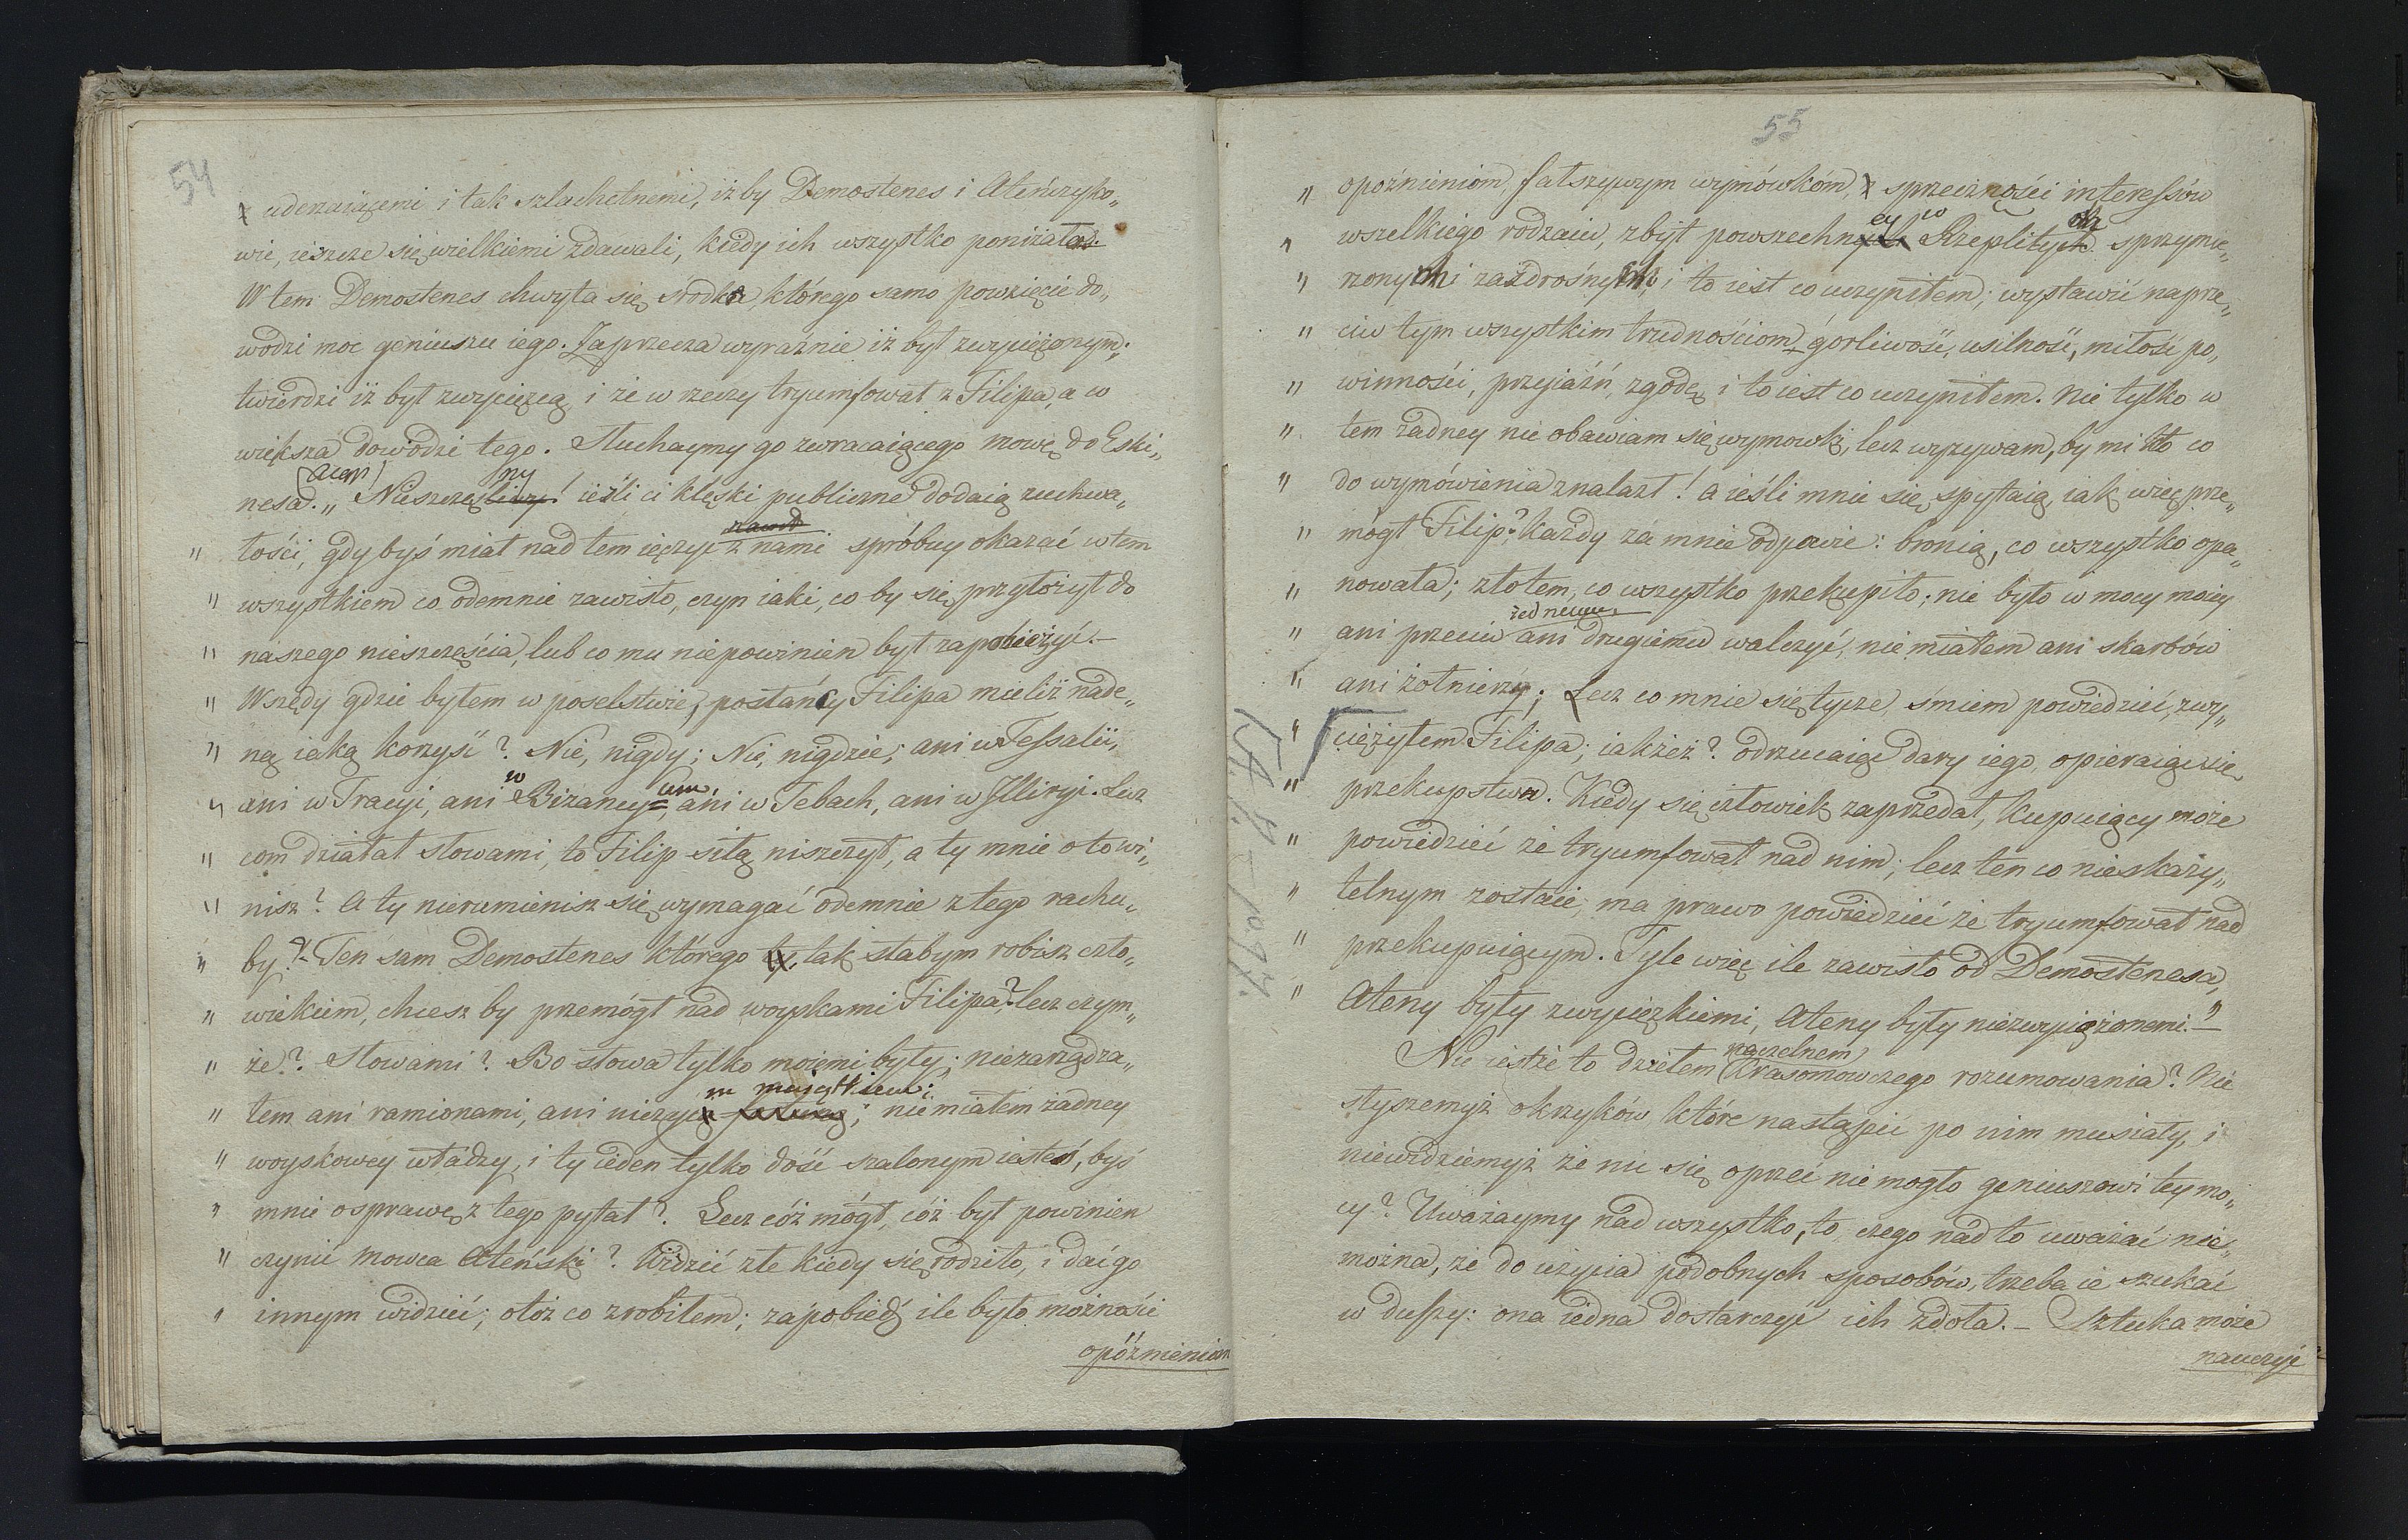 54
uderzaiącemi i tak szlachetnemi, iż by Demostenes i Ateńczyko„
wie, ieszcze się wielkiemi zdawali, kiedy ich wszystko poniżało.
W tem Demostenes chwyta się środka, którego samo powzięcie do„
wodzi moc geniuszu iego. Zaprzecza wyraźnie iż był zwyciężonym;
twierdzi iż był zwycięzcą, i że w rzeczy tryumfował z Filipa, a co
większa dowodzi tego. Słuchaymy go zwracaiącego mowę do Eski„
nesa. „ Nieszczęsny! ieśli ci klęski publiczne dodaią zuchwa„
„ tości, gdy byś miał nad tem ięczyć z nami spróbuy okazać w tem
„ wszystkiem co odemnie zawisło, czyn iaki, co by się przyłożył do
„ naszego nieszczęścia, lub co mu niepowinien był zapobieżyć. –
„ Wszędy gdzie byłem w poselstwie, posłańcy Filipa mieliż nade„
„ ną iaką korzyść? Nie, nigdy; Nie, nigdzie; ani w Tessalii,
„ ani w Tracyi, ani w Bizancyum, ani w Tebach, ani w Illiryi. Lecz
„ com działał słowami, to Filip siłą niszczył, a ty mnie o to wi„
„ nisz? A ty nierumienisz się wymagać odemnie z tego rachu„
„ by? – Ten sam Demostenes którego ty tak słabym robisz czło„
„ wiekiem, chcesz by przemógł nad woyskami Filipa? lecz czym„
„ że? Słowami? Bo słowa tylko moiemi były; niezarządza„
„ łem ani ramionami, ani niczyim maiątkiem; nie miałem żadney
„ woyskowey władzy, i ty ieden tylko dość szalonym iesteś, byś
„ mnie o sprawę z tego pytał? Lecz cóż mógł, cóż był powinien
„ czynić mowca Ateński? Widzieć złe kiedy się rodziło, i dać go
„ innym widzieć; otóż co zrobiłem; zapobiedź ile było możności
opóźnieniom
55
„ opoźnieniom, fałszywym wymówkóm, sprzeczności interessów
„ wszelkiego rodzaiu, zbyt powszechney w Rzeplitych sprzymie„
„ rzonych i zazdrosnych, i to iest co uczyniłem; wystawić naprze„
„ ciw tym wszystkim trudnościom, gorliwość, usilność, miłość po„
„ winności, przyiaźń, zgodę, i to iest co uczyniłem. Nie tylko w
„ tem żadney nie obawiam się wymowki, lecz wyzywam, by mi kto co
„ do wymówienia znalazł! A ieśli mnie się spytaią, iak więc prze„
„ mógł Filip? każdy za mnie odpowie: bronią, co wszystko opa„
„ nowała; złotem, co wszystko przekupiło; nie było w mocy moiey
„ ani przeciw iednemu ani drugiemu walczyć, nie miałem ani skarbów
„ ani żołnierzy; Lecz co mnie się tycze, śmiem powiedzieć, zwy„
„ ciężyłem Filipa; iakżeż? odrzucaiąc dary iego, opieraiąc się
„ przekupstwu. Kiedy się człowiek zaprzedał, kupuiący może
„ powiedzieć że tryumfował nad nim; lecz ten co nieskazy„
„ telnym zostaie, ma prawo powiedzieć że tryumfował nad
„ przekupuiącym. Tyle więc ile zawisło od Demostenesa,
„ Ateny były zwycięzkiemi, Ateny były niezwyciężonemi. –„
Nie iestże to dziełem naczelnem krasomowczego rozumowania? Nie
słyszemyż okrzyków które nastąpić po nim musiały, i
niewidziemyż że nic się oprzeć nie mogło geniuszowi tey mo„
cy? Uważaymy nad wszystko, to czego nad to uważać nie„
można, że do użycia podobnych sposobów, trzeba ie szukać
w duszy: ona iedna dostarczyć ich zdoła. – Sztuka może
nauczyć